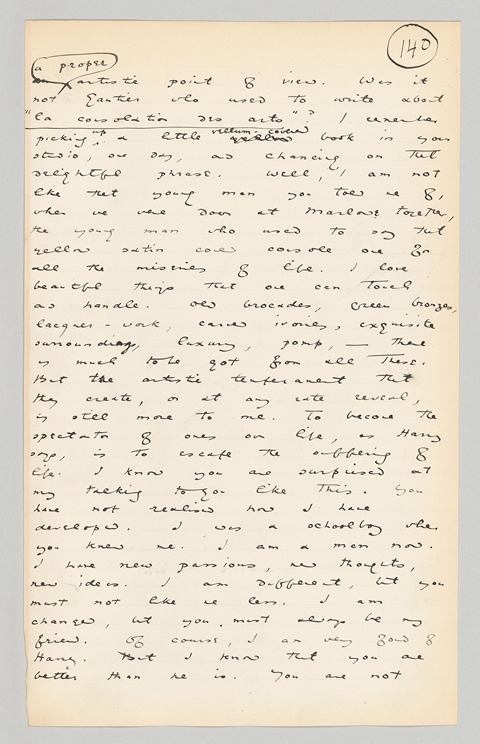 140
a proper
artistic point of view. Was it
not Gautier who used to write about
"la consolation des arts"? I remember
picking up a little vellum-covered book in your
studio, one day, and chancing on that
delightful phrase. Well, I am not
like that young man you told me of,
when we were down at Marlowe together,
the young man who used to say that
yellow satin could console one for
all the miseries of life. I love
beautiful things that one can touch
and handle. Old brocades, green bronzes,
lacquer-work, carved ivories, exquisite
surroundings, luxury, pomp, — there
is much to be got from all these.
But the artistic temperament that
they create, or at any rate reveal,
is still more to me. To become the
spectator of ones own life, as Harry
says, is to escape the suffering of
life. I know you are surprised at
my talking to you like this. You
have not realised how I have
developed. I was a schoolboy when
you knew me. I am a man now.
I have new passions, new thoughts,
new ideas. I am different, but you
must not like me less. I am
changed, but you must always be my
friend. Of course, I am very fond of
Harry. But I know that you are
better than he is. You are not